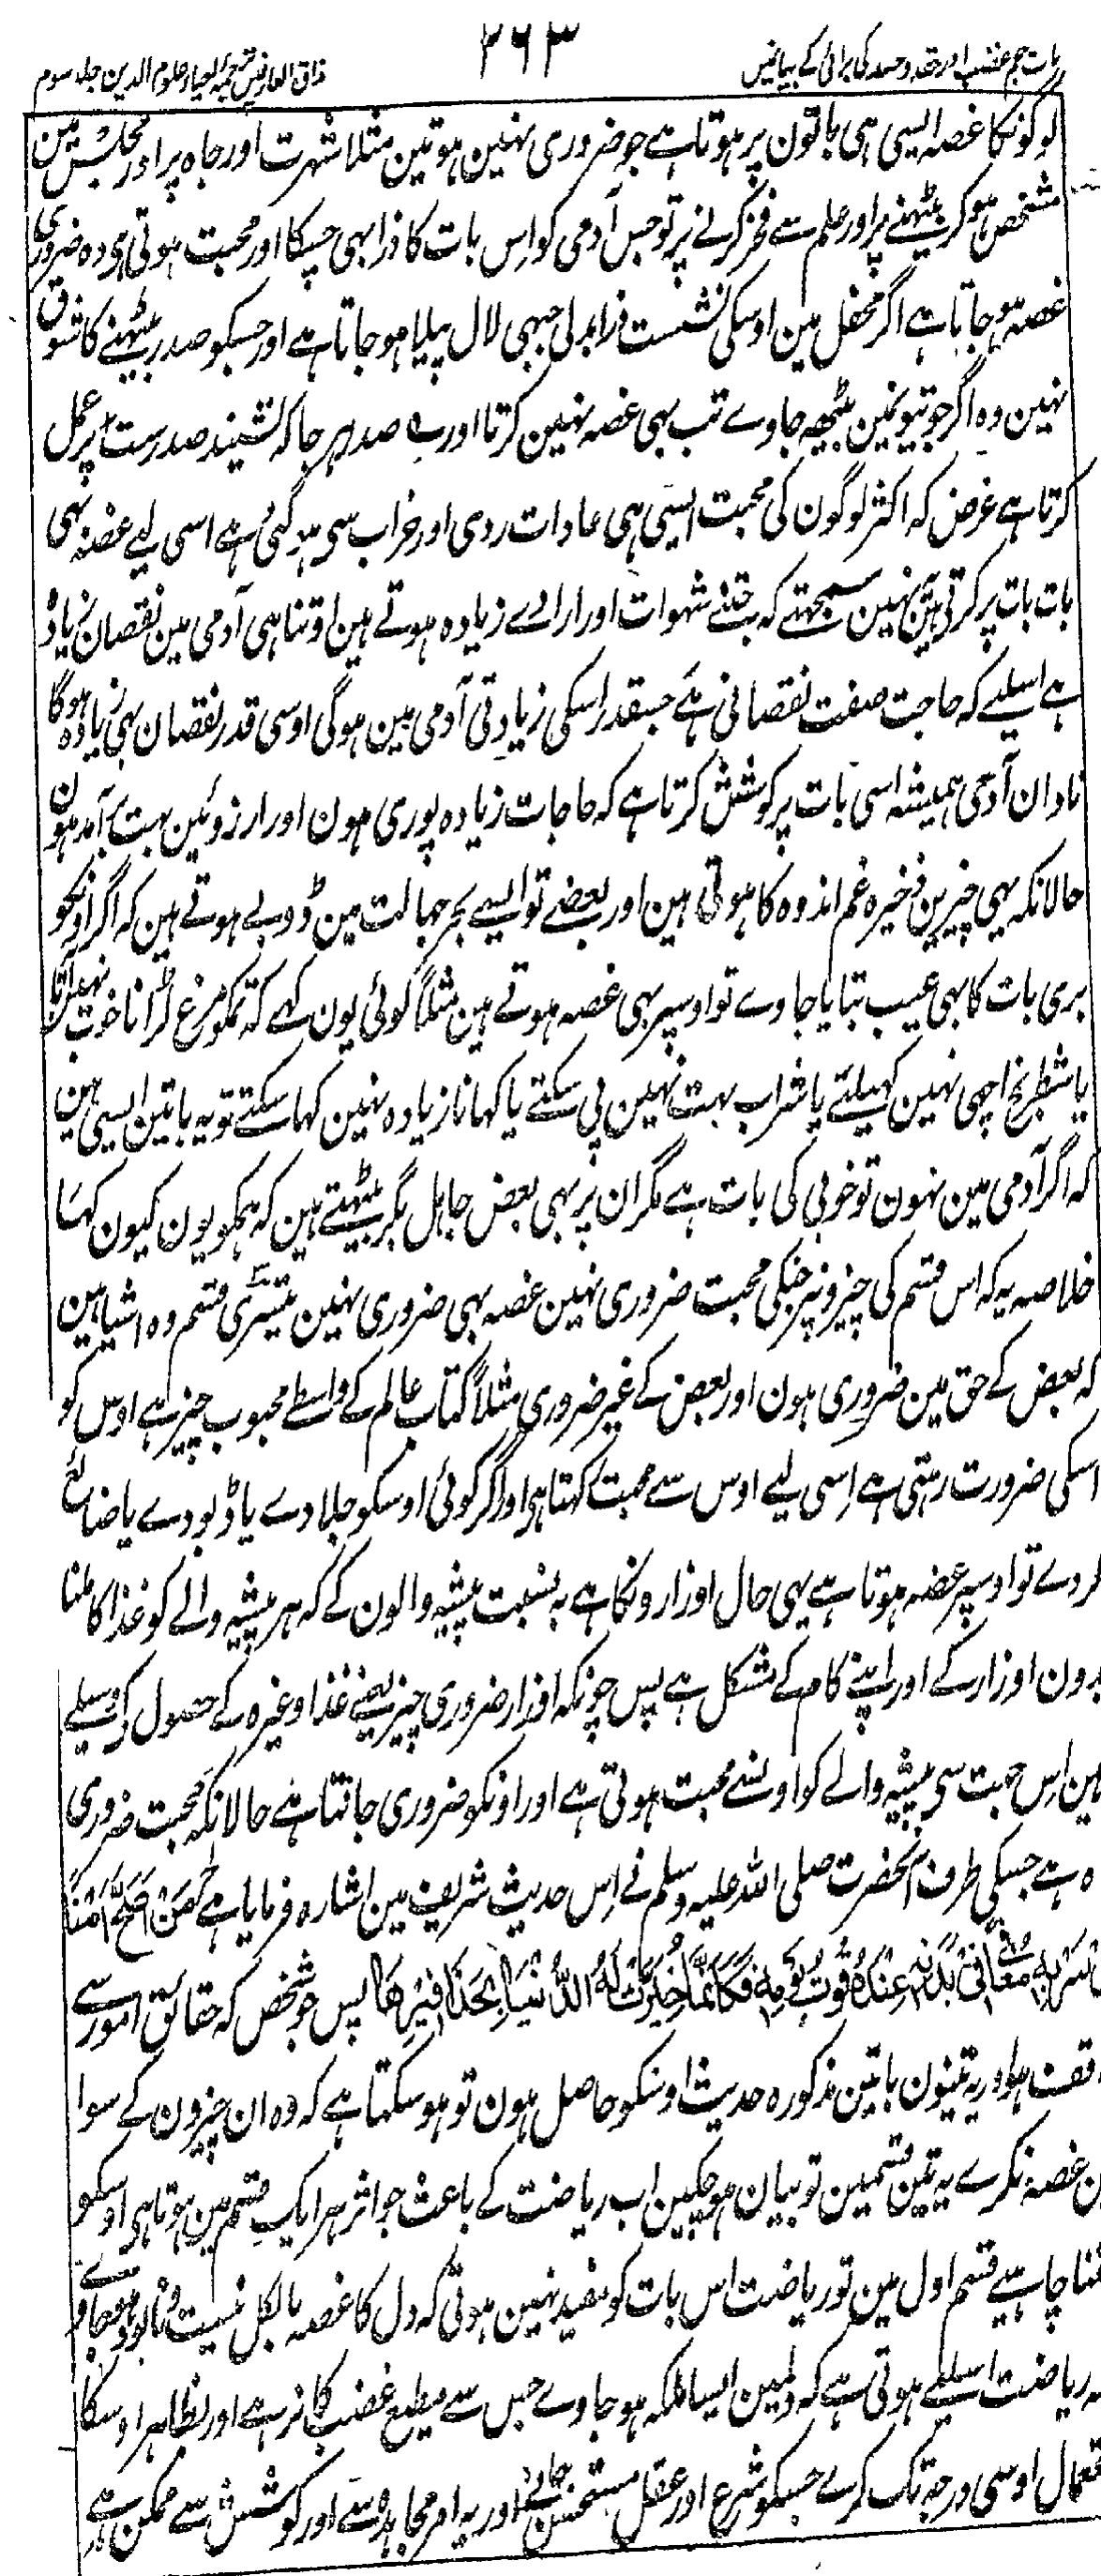 باب پنجم غضب اور حقد و حسد کی برائی کے بیان میں
۳۶۳
مذاق العارفین ترجمۂ احیاء علوم الدین جلد سوم
لوگونکا غصہ ایسی ہی باتون پر ہوتا ہے جو ضروری نہین ہوتین مثلا شہرت اور جاہ پر اور مجلس مین
مشخص ہو کر بیٹھنے پر اور علم سے فخر کرنے پر تو جس آدمی کو اِس بات کا ذرا بہی چسکا اور محبت ہوتی ہی وہ ضروری
غصہ ہو جاتا ہے اگر محفل مین اوسکی نشست ذرا بدلی جبہی لال پیلا ہو جاتا ہے اور جسکو صدر بیٹھنے کا شوق
نہین وہ اگر جوتیونمین بیٹھہ جاوے تب بہی غصہ نہین کرتا اور صدر ہر جا کہ نشیند صدرست پر عمل
کرتا ہے غرض کہ اکثر لوگون کی محبت ایسی ہی عادات ردی اور خراب سی ہو گئی ہے اسی لیے غصہ بہی
بات بات پر کرتی ہین نہین سمجھتے کہ جتنے شہوات اور ارادے زیادہ ہوتے ہین اوتنا ہی آدمی مین نقصان زیادہ
ہے اسلیے کہ حاجت صفت نقصانی ہے جسقدر اسکی زیادتی آدمی مین ہوگی اوسی قدر نقصان بہی زیادہ ہوگا
نادان آدمی ہمیشہ اسی بات پر کوشش کرتا ہے کہ حاجات زیادہ پوری ہون اور ارزوئین بہت برآمد ہون
حالانکہ یہی چیزین ذخیرہ غم اندوہ کا ہوتی ہین اور بعضے تو ایسے بحر جہالت مین ڈوبے ہوتے ہین کہ اگر اونکو
بری بات کا بہی عیب بتایا جاوے تو اوسپر بہی غصہ ہوتے ہین مثلاً کوئی یون کہے کہ تمکو مرغ لڑانا خوب نہین آتا
یا شطرنج اچھی نہین کھیلتے یا شراب بہت نہین پی سکتے یا کہانا زیادہ نہین کہا سکتے تو یہ باتین ایسی ہین
کہ اگر آدمی مین نہون تو خوبی کی بات ہے مگر ان پر بہی بعض جاہل بگڑ بیٹھتے ہین کہ ہمکو یون کیون کہا
خلاصہ یہ کہ اس قسم کی چیزونپر جنکی محبت ضروری نہین غصہ بہی ضروری نہین تیسری قسم وہ اشیا ہین
کہ بعض کے حق مین ضروری ہون اور بعض کے غیر ضروری مثلاً کتاب عالم کے واسطے محبوب چیز ہے اوس کو
اسکی ضرورت رہتی ہے اِسی لیے اوس سے محبت رکہتا ہی اور اگر کوئی اوسکو جلا دے یا ڈبودے یا ضائع
کردے تو اوسپر غصہ ہوتا ہے یہی حال اوزارونکا ہے بہ نسبت پیشہ والون کے کہ ہر پیشہ والے کو غذا کا ملنا
بدون اوزار کے اور اپنے کام کے مشکل ہے پس چونکہ اوزار ضروری چیز یعنے غذا وغیرہ کے حصول کے وسیلے
ہین اِس جہت سی پیشہ والے کو اونسے محبت ہوتی ہے اور اونکو ضروری جانتا ہے حالانکہ محبت ضروری
وہ ہے جسکی طرف آنحضرت صلی اللہ علیہ وسلم نے اِس حدیث شریف مین اشارہ فرمایا ہے مَنْ اَصْبَحَ اٰمِنًا
فِی سِرْبِہٖ مُعَافًی فِیْ بَدَنِہٖ عِنْدَہٗ قُوْتُ یَوْمِہٖ فَکَاَنَّمَا حِیْزَتْ لَہُ الدُّنْیَا بِحَذَافِیْرِھَا پس جو شخص کہ حقائق امور سے
واقف ہو اور یہ تینون باتین مذکورہ حدیث اوسکو حاصل ہون تو ہو سکتا ہے کہ وہ ان چیزون کے سوا
مین غصہ نکرے یہ تین قسمین تو بیان ہو چکین اب ریاضت کے باعث جو اثر ہر ایک قسم مین ہوتا ہی اوسکو
سننا چاہیے قسم اول مین تو ریاضت اس بات کو مفید نہین ہوتی کہ دل کا غصہ بالکل نیست و نابود ہو جاوے
بلکہ ریاضت اسلیے ہوتی ہے کہ دلمین ایسا ملکہ ہو جاوے جس سے مطیع غضب کا نرہے اور بظاہر اوسکا
استعمال اوسی درجہ تک کرے جسکو شرع اور عقل مستحسن جانے اور یہ امر مجاہدہ سے اور کوشش سے ممکن ہے